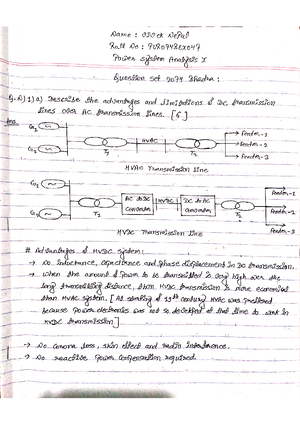 Name : Nepal
Roll No :
Power system Analysis I
Question set 2074 Bhadra :
Q.No) 1) a) Describe the advantages and limitations of DC transmission
lines over AC transmission lines. [6]
Ans
G1
G2
T1
HVAC
T2
Feeder-1
Feeder-2
Feeder-3
HVAC Transmission Line
G1
G2
T1
AC to DC
Converter
HVDC
DC to AC
Converter
T2
Feeder-1
Feeder-2
Feeder-3
HVDC Transmission Line
# Advantages of HVDC system:
→ No inductance, capacitance and phase displacement in DC transmission.
→ When the amount of power to be transmitted is very high over the
long transmitting distance, then HVDC transmission is more economical
than HVAC system. [ At starting of 19th century HVAC was preferred
because power electronics was not so developed at that time to work in
HVDC transmission]
→ No corona loss, skin effect and radio interference.
→ No reactive power compensation required.